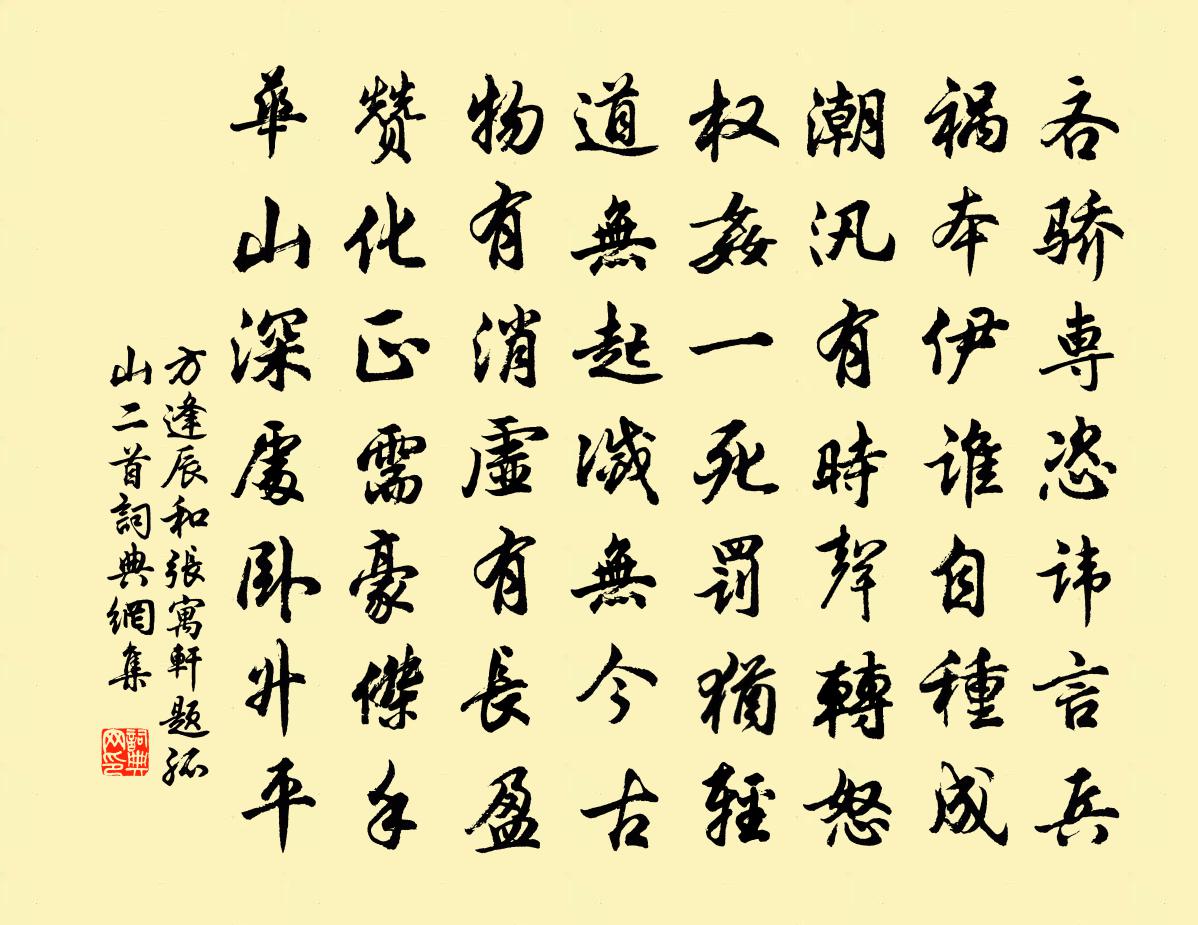 吝骄専恣讳言兵
祸本伊谁自種成
潮汛有時聲轉怒
权姦一死罰猶輕
道無起滅無今古
物有消虛有長盈
赞化正需豪傑手
華山深處卧升平
方逢辰和張寓軒題孤
山二首詞典網集
詞典網印